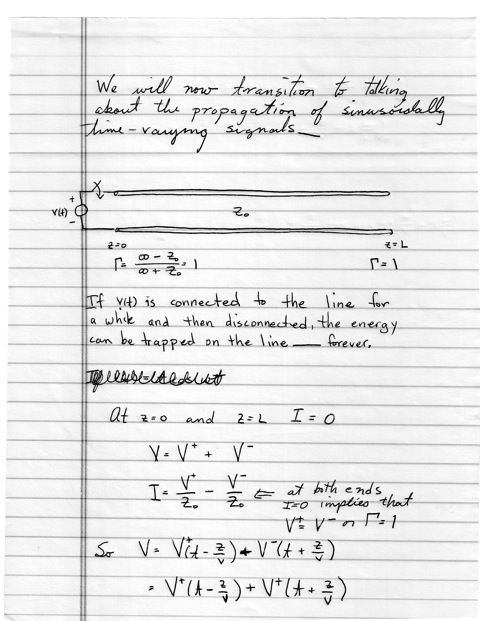 We will now transition to talking
about the propagation of sinusoidally
time-varying signals —
V(t) + -
Z₀
z=0 z=L
Γ = (∞ - Z₀)/(∞ + Z₀) = 1 Γ = 1
If V(t) is connected to the line for
a while and then disconnected, the energy
can be trapped on the line — forever.
At z=0 and z=L I = 0
V = V⁺ + V⁻
I = V⁺/Z₀ - V⁻/Z₀ ⇐ at both ends
I=0 implies that
V⁺ = V⁻ or Γ = 1
So V = V⁺(t - z/v) + V⁻(t + z/v)
= V⁺(t - z/v) + V⁺(t + z/v)